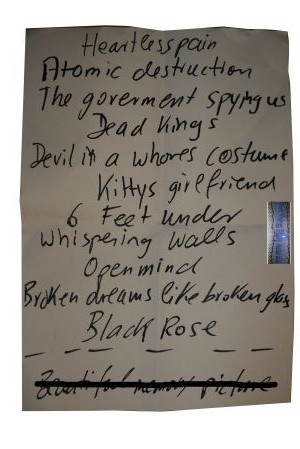 Heartlesspain
Atomic destruction
The goverment spying us
Dead Kings
Devil in a whores costume
Kittys girlfriend
6 Feet under
Whispering Walls
Open mind
Broken dreams like broken glass
Black Rose
Beautiful memory picture